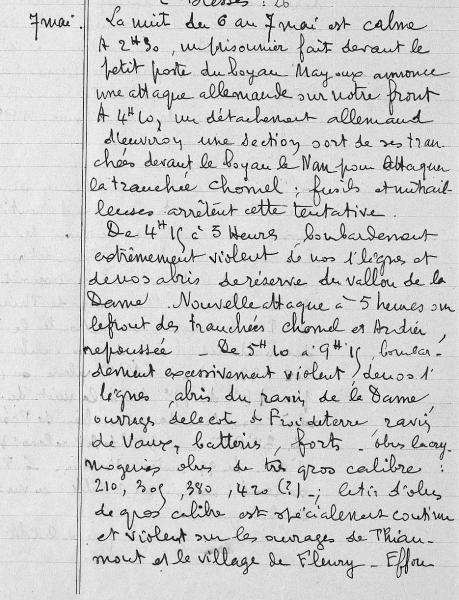 Blessés : 26
7 mai. La nuit du 6 au 7 mai est calme
A 2H30, un prisonnier fait devant le
petit poste du boyau Mayoux annonce
une attaque allemande sur notre front
A 4H10, un détachement allemand
d'environ une section sort de ses tran
chées devant le boyau le Nan pour attaquer
la tranchée Chomel ; fusils et mitrail
leuses arrêtent cette tentative.
De 4H15 à 5 Heures bombardement
extrêmement violent de nos 1° lignes et
de nos abris de réserve du vallon de la
Dame. Nouvelle attaque à 5 heures sur
le front des tranchées Chomel et Andrié,
repoussée - De 5H10 à 9H15, bombar-
dement excessivement violent de nos 1°
lignes, abris du ravin de la Dame
ouvrages de la cote de Froideterre, ravin
de Vaux, batteries, forts - obus lacry-
mogènes obus de très gros calibre :
210, 305, 380, 420 (?) -; le tir d'obus
de gros calibre est spécialement continu
et violent sur les ouvrages de Thiau-
mont et le village de Fleury - Effon